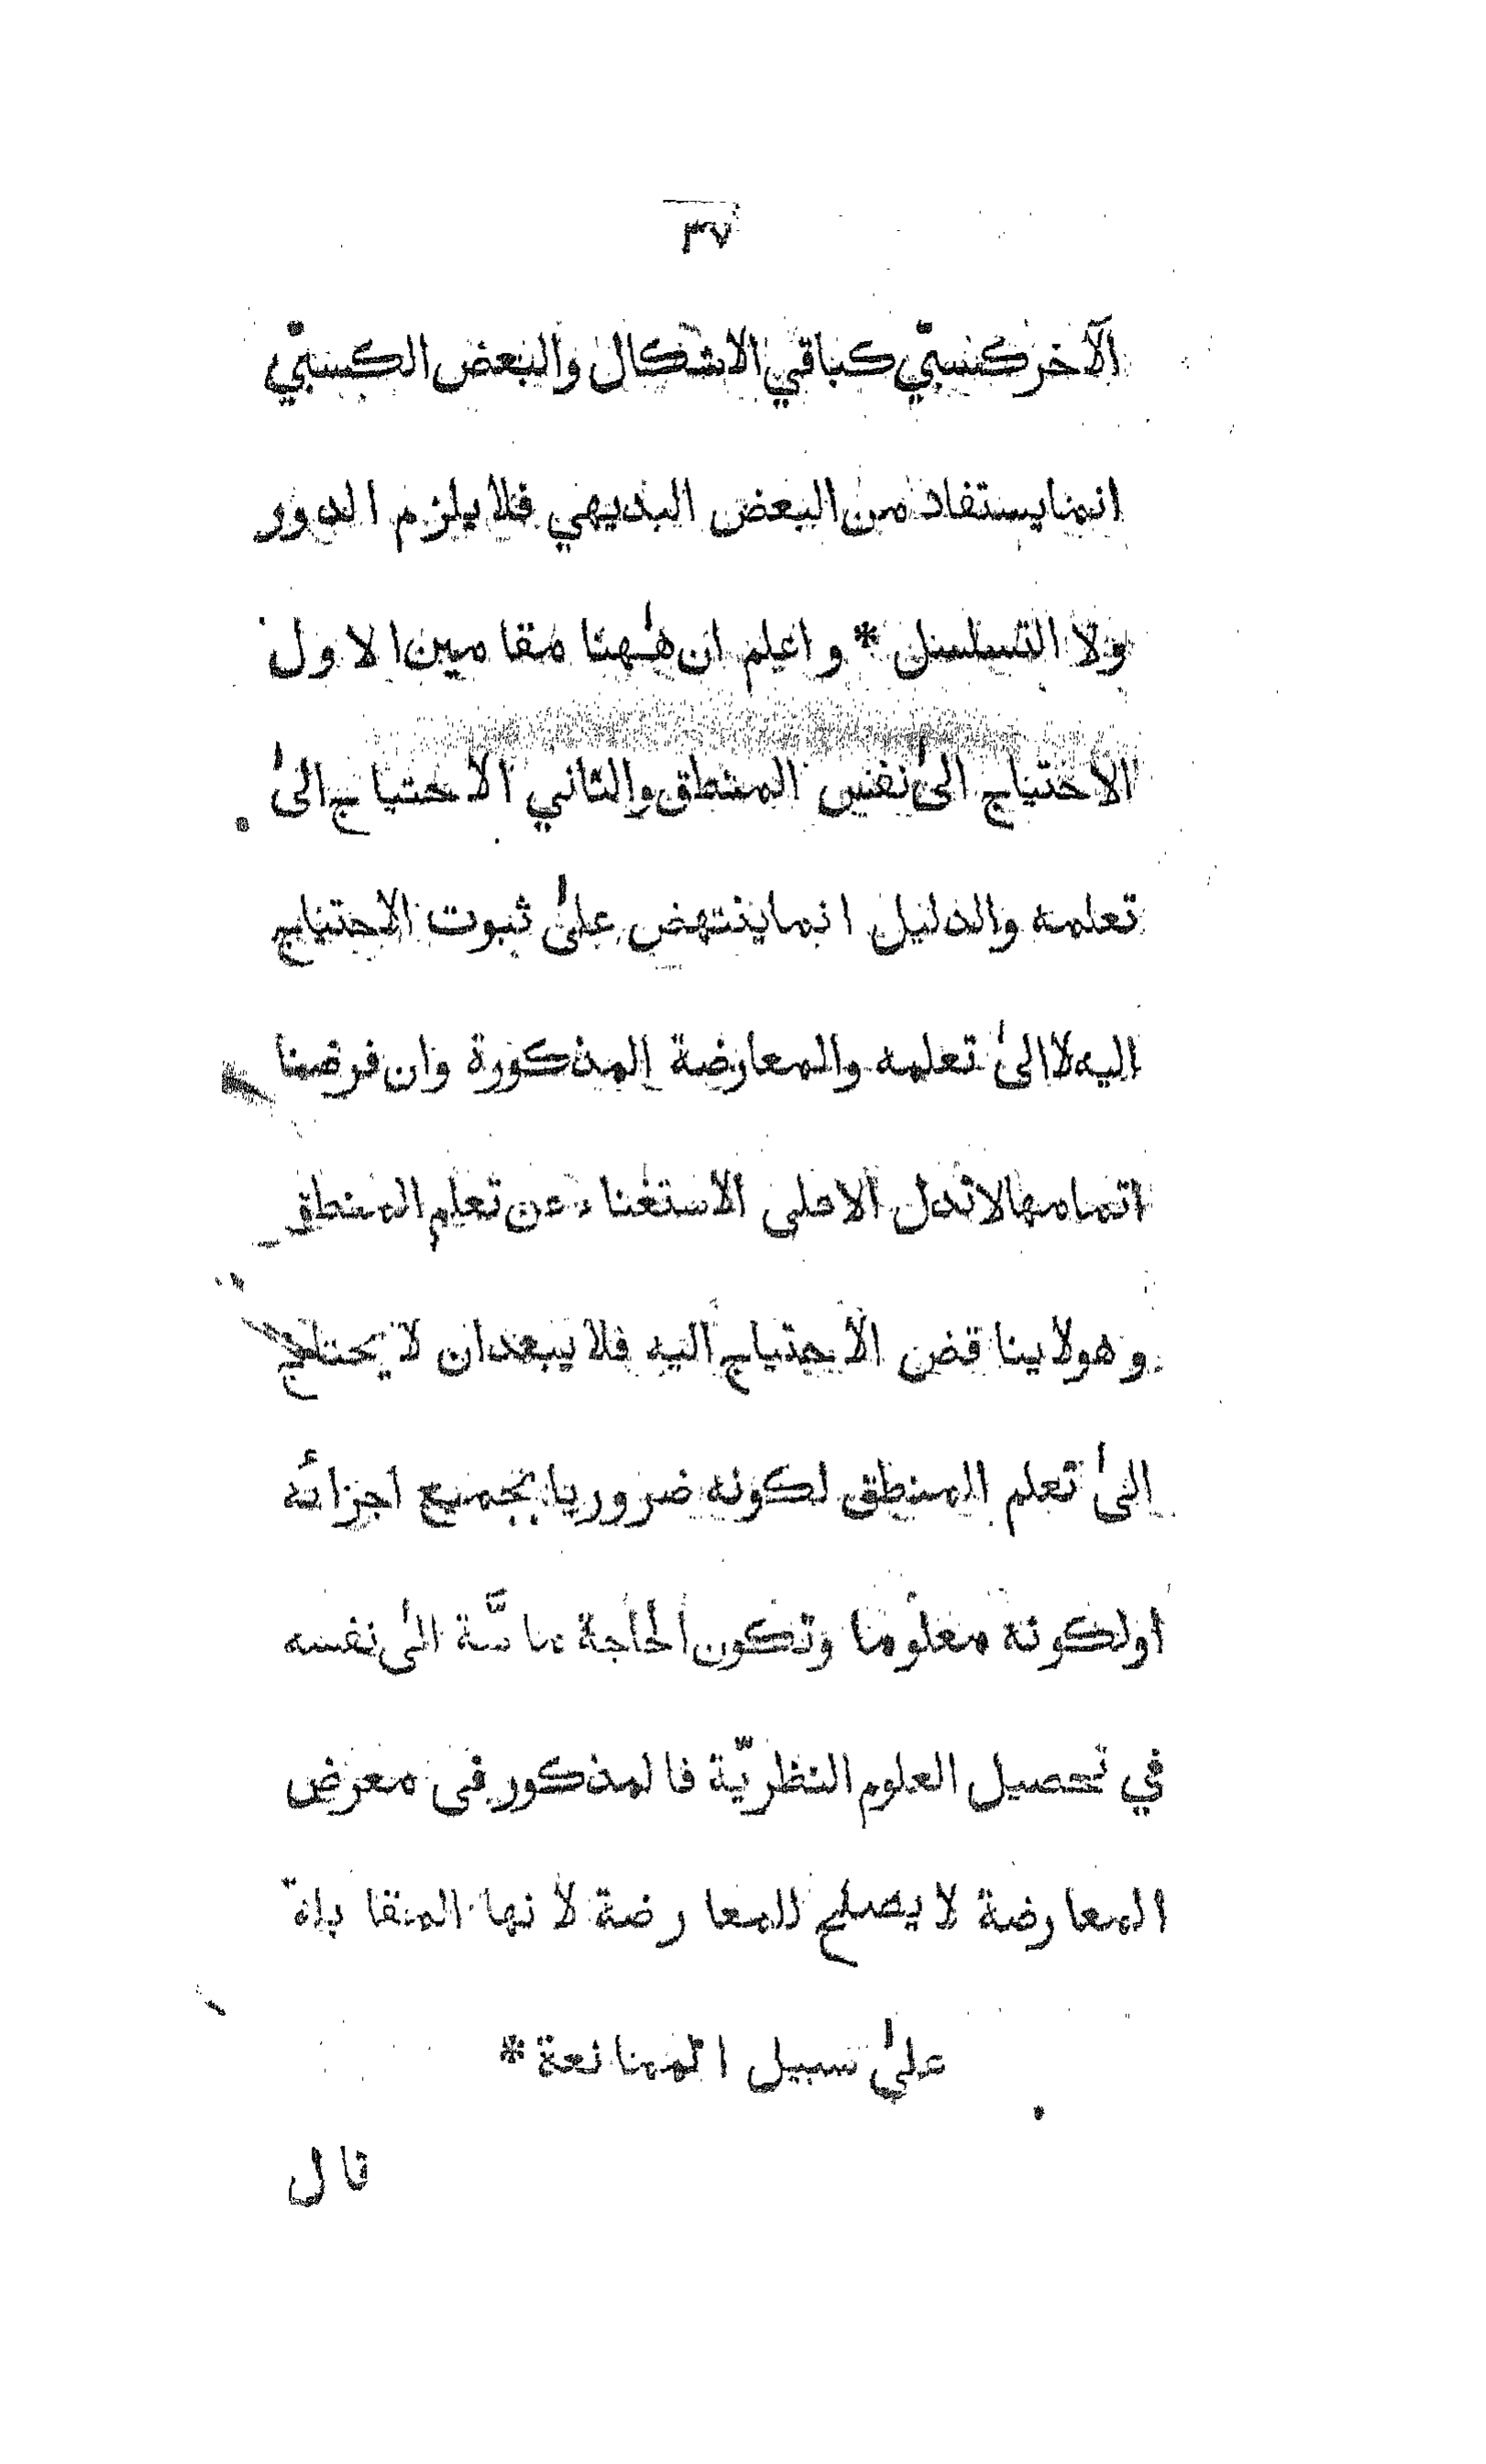 ٣٧
الآخر كسبيّ كباقي الاشكال والبعض الكسبيّ
انما يستفاد من البعض البديهي فلا يلزم الدور
ولا التسلسل * واعلم ان هٰهنا مقامين الاول
الاحتياج الىٰ نفس المنطق والثاني الاحتياج الىٰ
تعلمه والدليل انما ينتهض علىٰ ثبوت الاحتياج
اليه لا الىٰ تعلمه والمعارضة المذكورة وان فرضنا
اتمامها لا تدل الا على الاستغناء عن تعلم المنطق
وهو لا يناقض الاحتياج اليه فلا يبعد ان لا يحتاج
الىٰ تعلم المنطق لكونه ضروريا بجميع اجزائه
او لكونه معلوما وتكون الحاجة ماسّة الىٰ نفسه
في تحصيل العلوم النظريّة فالمذكور فى معرض
المعارضة لا يصلح للمعارضة لانها المقابلة
علىٰ سبيل الممانعة *
قال